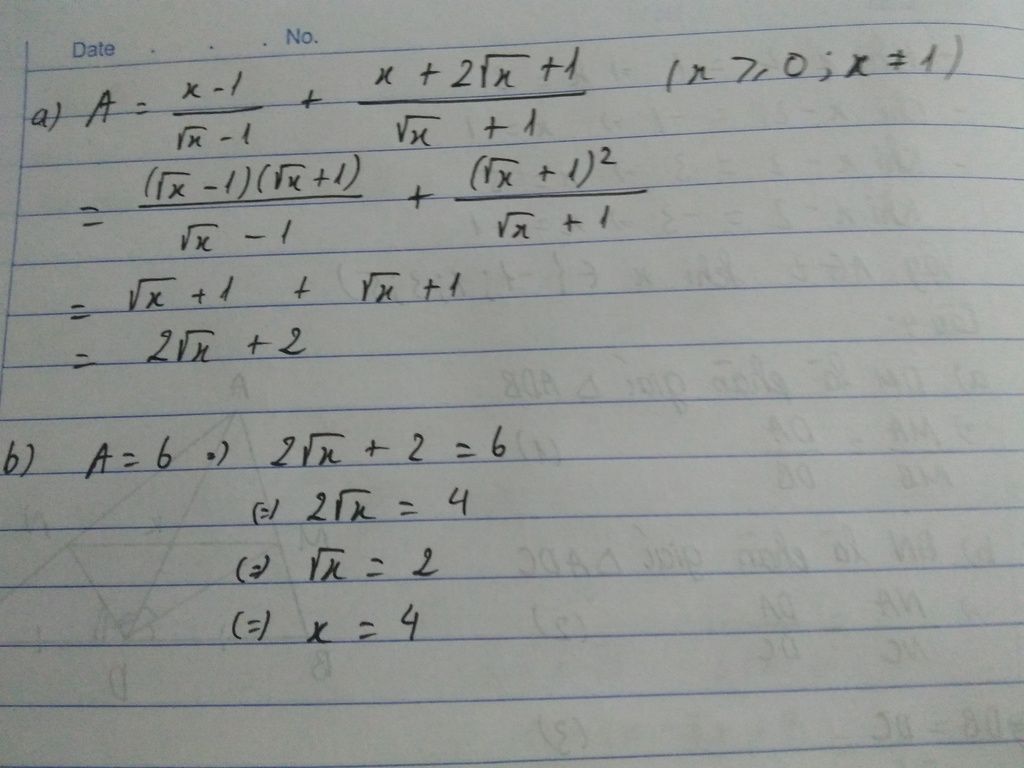 Date . . . No.
a) A = \frac{x-1}{\sqrt{x}-1} + \frac{x+2\sqrt{x}+1}{\sqrt{x}+1} (x ≥ 0; x ≠ 1)
= \frac{(\sqrt{x}-1)(\sqrt{x}+1)}{\sqrt{x}-1} + \frac{(\sqrt{x}+1)^2}{\sqrt{x}+1}
= \sqrt{x}+1 + \sqrt{x}+1
= 2\sqrt{x}+2
b) A = 6 => 2\sqrt{x}+2 = 6
(=) 2\sqrt{x} = 4
(=) \sqrt{x} = 2
(=) x = 4